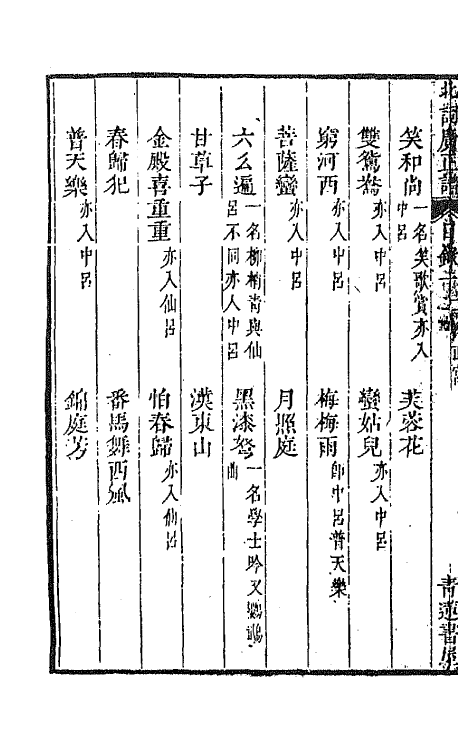 北詞廣正譜 目錄 正宮 青蓮書屋
笑和尚 一名笑歌賞亦入中呂 芙蓉花
雙鴛鴦 亦入中呂 蠻姑兒 亦入中呂
窮河西 亦入中呂 梅梅雨 卽中呂普天樂
菩薩蠻 亦入中呂 月照庭
六幺遍 一名柳梢靑與仙呂不同亦入中呂 黑漆弩 一名學士吟又鸚鵡曲
甘草子 漢東山
金殿喜重重 亦入仙呂 怕春歸 亦入仙呂
春歸犯 番馬舞西風
普天樂 亦入中呂 錦庭芳